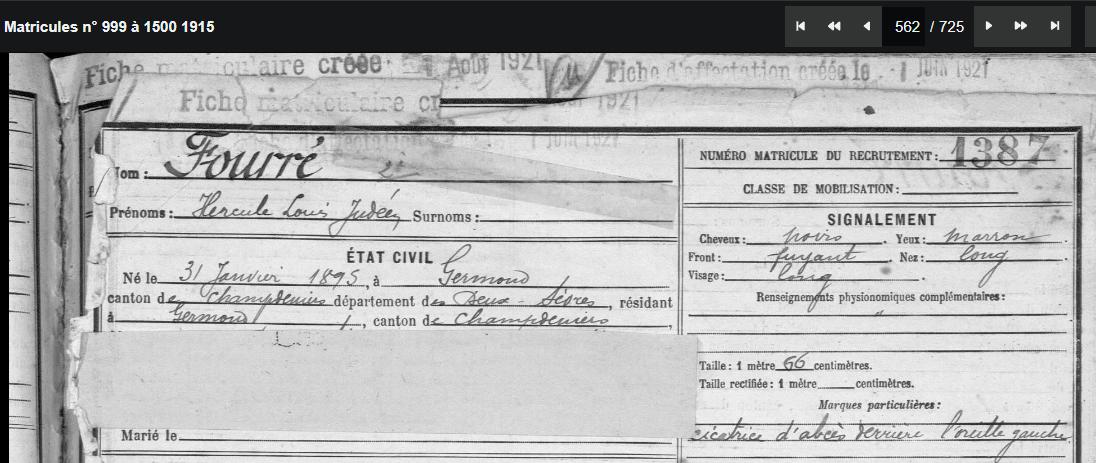 Matricules n° 999 à 1500 1915
562 / 725
Fiche matriculaire créée Août 1921
Fiche d'affectation créée le 1 JUIN 1921
Fiche matriculaire cr 1921
1 JUIN 1921
Nom : Fourré
NUMÉRO MATRICULE DU RECRUTEMENT : 1387
CLASSE DE MOBILISATION :
Prénoms : Hercule Louis Surnoms :
SIGNALEMENT
Cheveux : noirs . Yeux : marron .
Front : fuyant . Nez : long .
Visage : long .
Renseignements physionomiques complémentaires :
"
ÉTAT CIVIL
Né le 31 Janvier 1895, à Germond
canton de Champdeniers département des Deux-Sèvres, résidant
à Germond, canton de Champdeniers,
Taille : 1 mètre 66 centimètres.
Taille rectifiée : 1 mètre centimètres.
Marques particulières :
cicatrice d'abcès derrière l'oreille gauche
Marié le